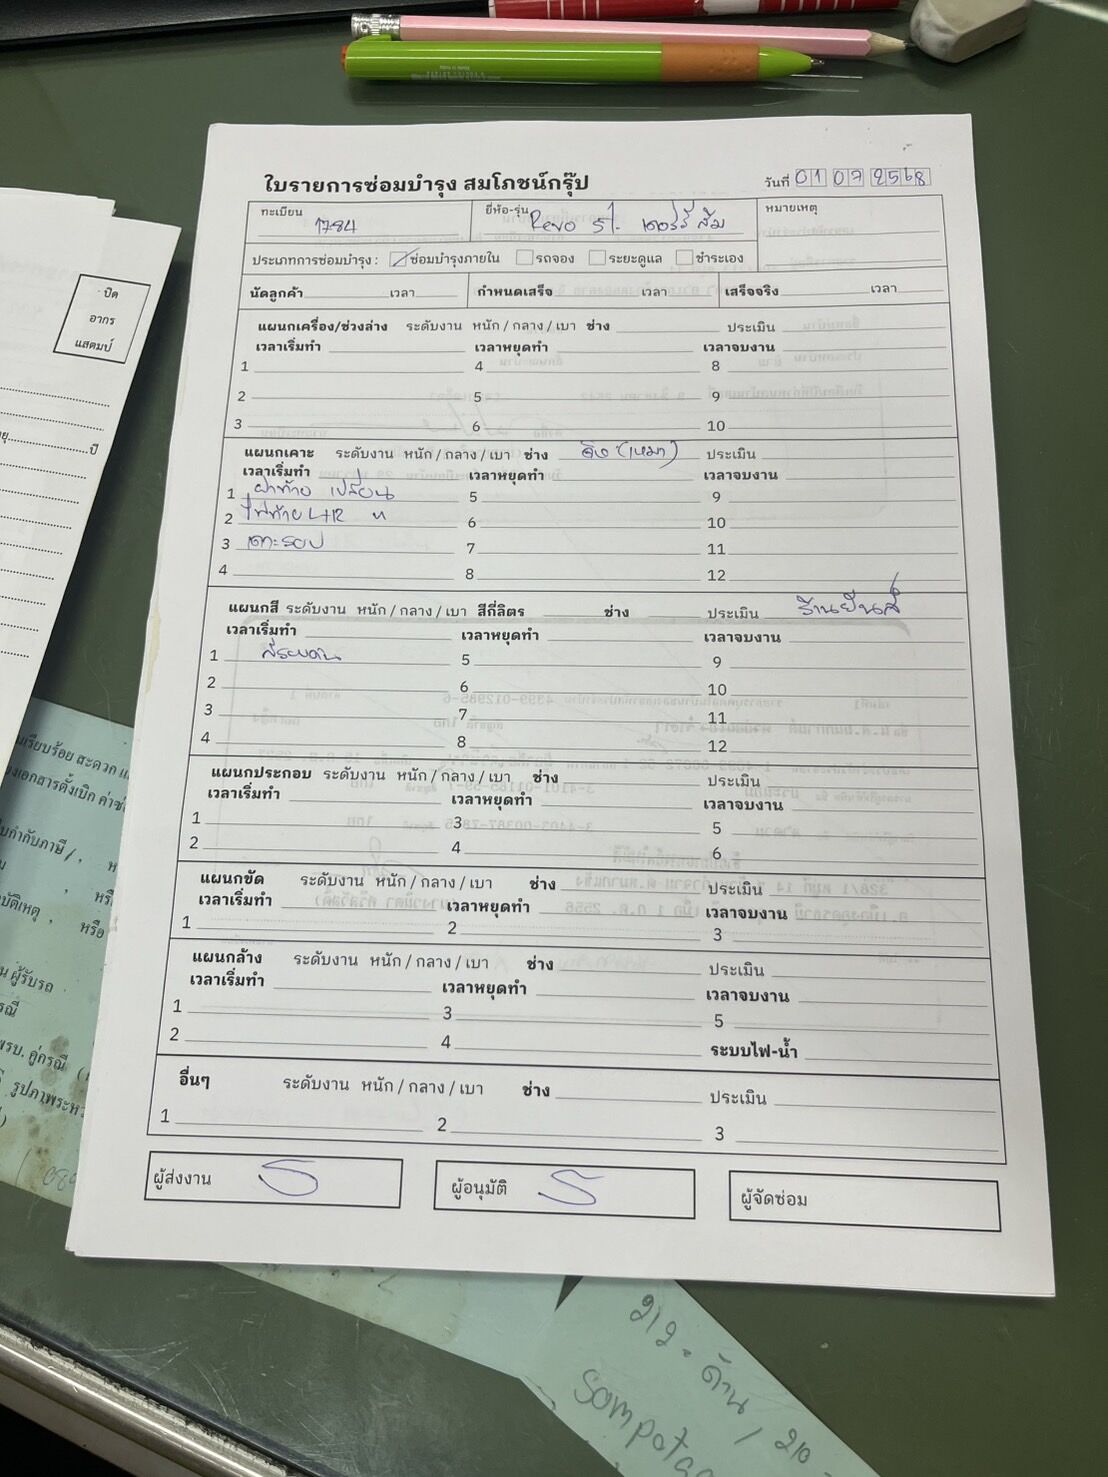 ใบรายการซ่อมบำรุง สมโภชน์กรุ๊ป
วันที่ 01 07 2568
ทะเบียน 1784
ยี่ห้อ-รุ่น Revo
หมายเหตุ
ประเภทการซ่อมบำรุง : ซ่อมบำรุงภายใน รถจอง ระยะดูแล ชำระเอง
นัดลูกค้า เวลา กำหนดเสร็จ เวลา เสร็จจริง เวลา
แผนกเครื่อง/ช่วงล่าง ระดับงาน หนัก / กลาง / เบา ช่าง ประเมิน
เวลาเริ่มทำ เวลาหยุดทำ เวลาจบงาน
1 4 8
2 5 9
3 6 10
แผนกเคาะ ระดับงาน หนัก / กลาง / เบา ช่าง (เหมา) ประเมิน
เวลาเริ่มทำ เวลาหยุดทำ เวลาจบงาน
1 ฝาท้าย เปลี่ยน 5 9
2 ไฟท้าย L+R 〃 6 10
3 เคาะรอบ 7 11
4 8 12
แผนกสี ระดับงาน หนัก / กลาง / เบา สีกี่ลิตร ช่าง ประเมิน
เวลาเริ่มทำ เวลาหยุดทำ เวลาจบงาน
1 สีรอบคัน 5 9
2 6 10
3 7 11
4 8 12
แผนกประกอบ ระดับงาน หนัก / กลาง / เบา ช่าง ประเมิน
เวลาเริ่มทำ เวลาหยุดทำ เวลาจบงาน
1 3 5
2 4 6
แผนกขัด ระดับงาน หนัก / กลาง / เบา ช่าง ประเมิน
เวลาเริ่มทำ เวลาหยุดทำ เวลาจบงาน
1 2 3
แผนกล้าง ระดับงาน หนัก / กลาง / เบา ช่าง ประเมิน
เวลาเริ่มทำ เวลาหยุดทำ เวลาจบงาน
1 3 5
2 4 ระบบไฟ-น้ำ
อื่นๆ ระดับงาน หนัก / กลาง / เบา ช่าง ประเมิน
1 2 3
ผู้ส่งงาน ผู้อนุมัติ ผู้จัดซ่อม
ปิด
อากร
แสตมป์
ปี
212. ด้าน / 210